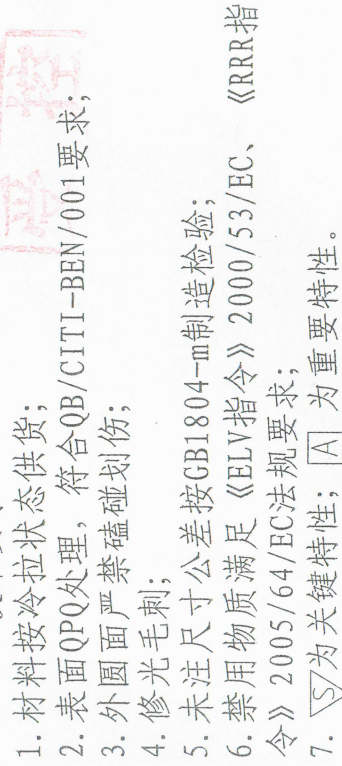 1. 材料按冷拉状态供货;
2. 表面QPQ处理, 符合QB/CITI-BEN/001要求;
3. 外圆面严禁磕碰划伤;
4. 修光毛刺;
5. 未注尺寸公差按GB1804-m制造检验;
6. 禁用物质满足《ELV指令》2000/53/EC、《RRR指
令》2005/64/EC法规要求;
7. S为关键特性; A 为重要特性。